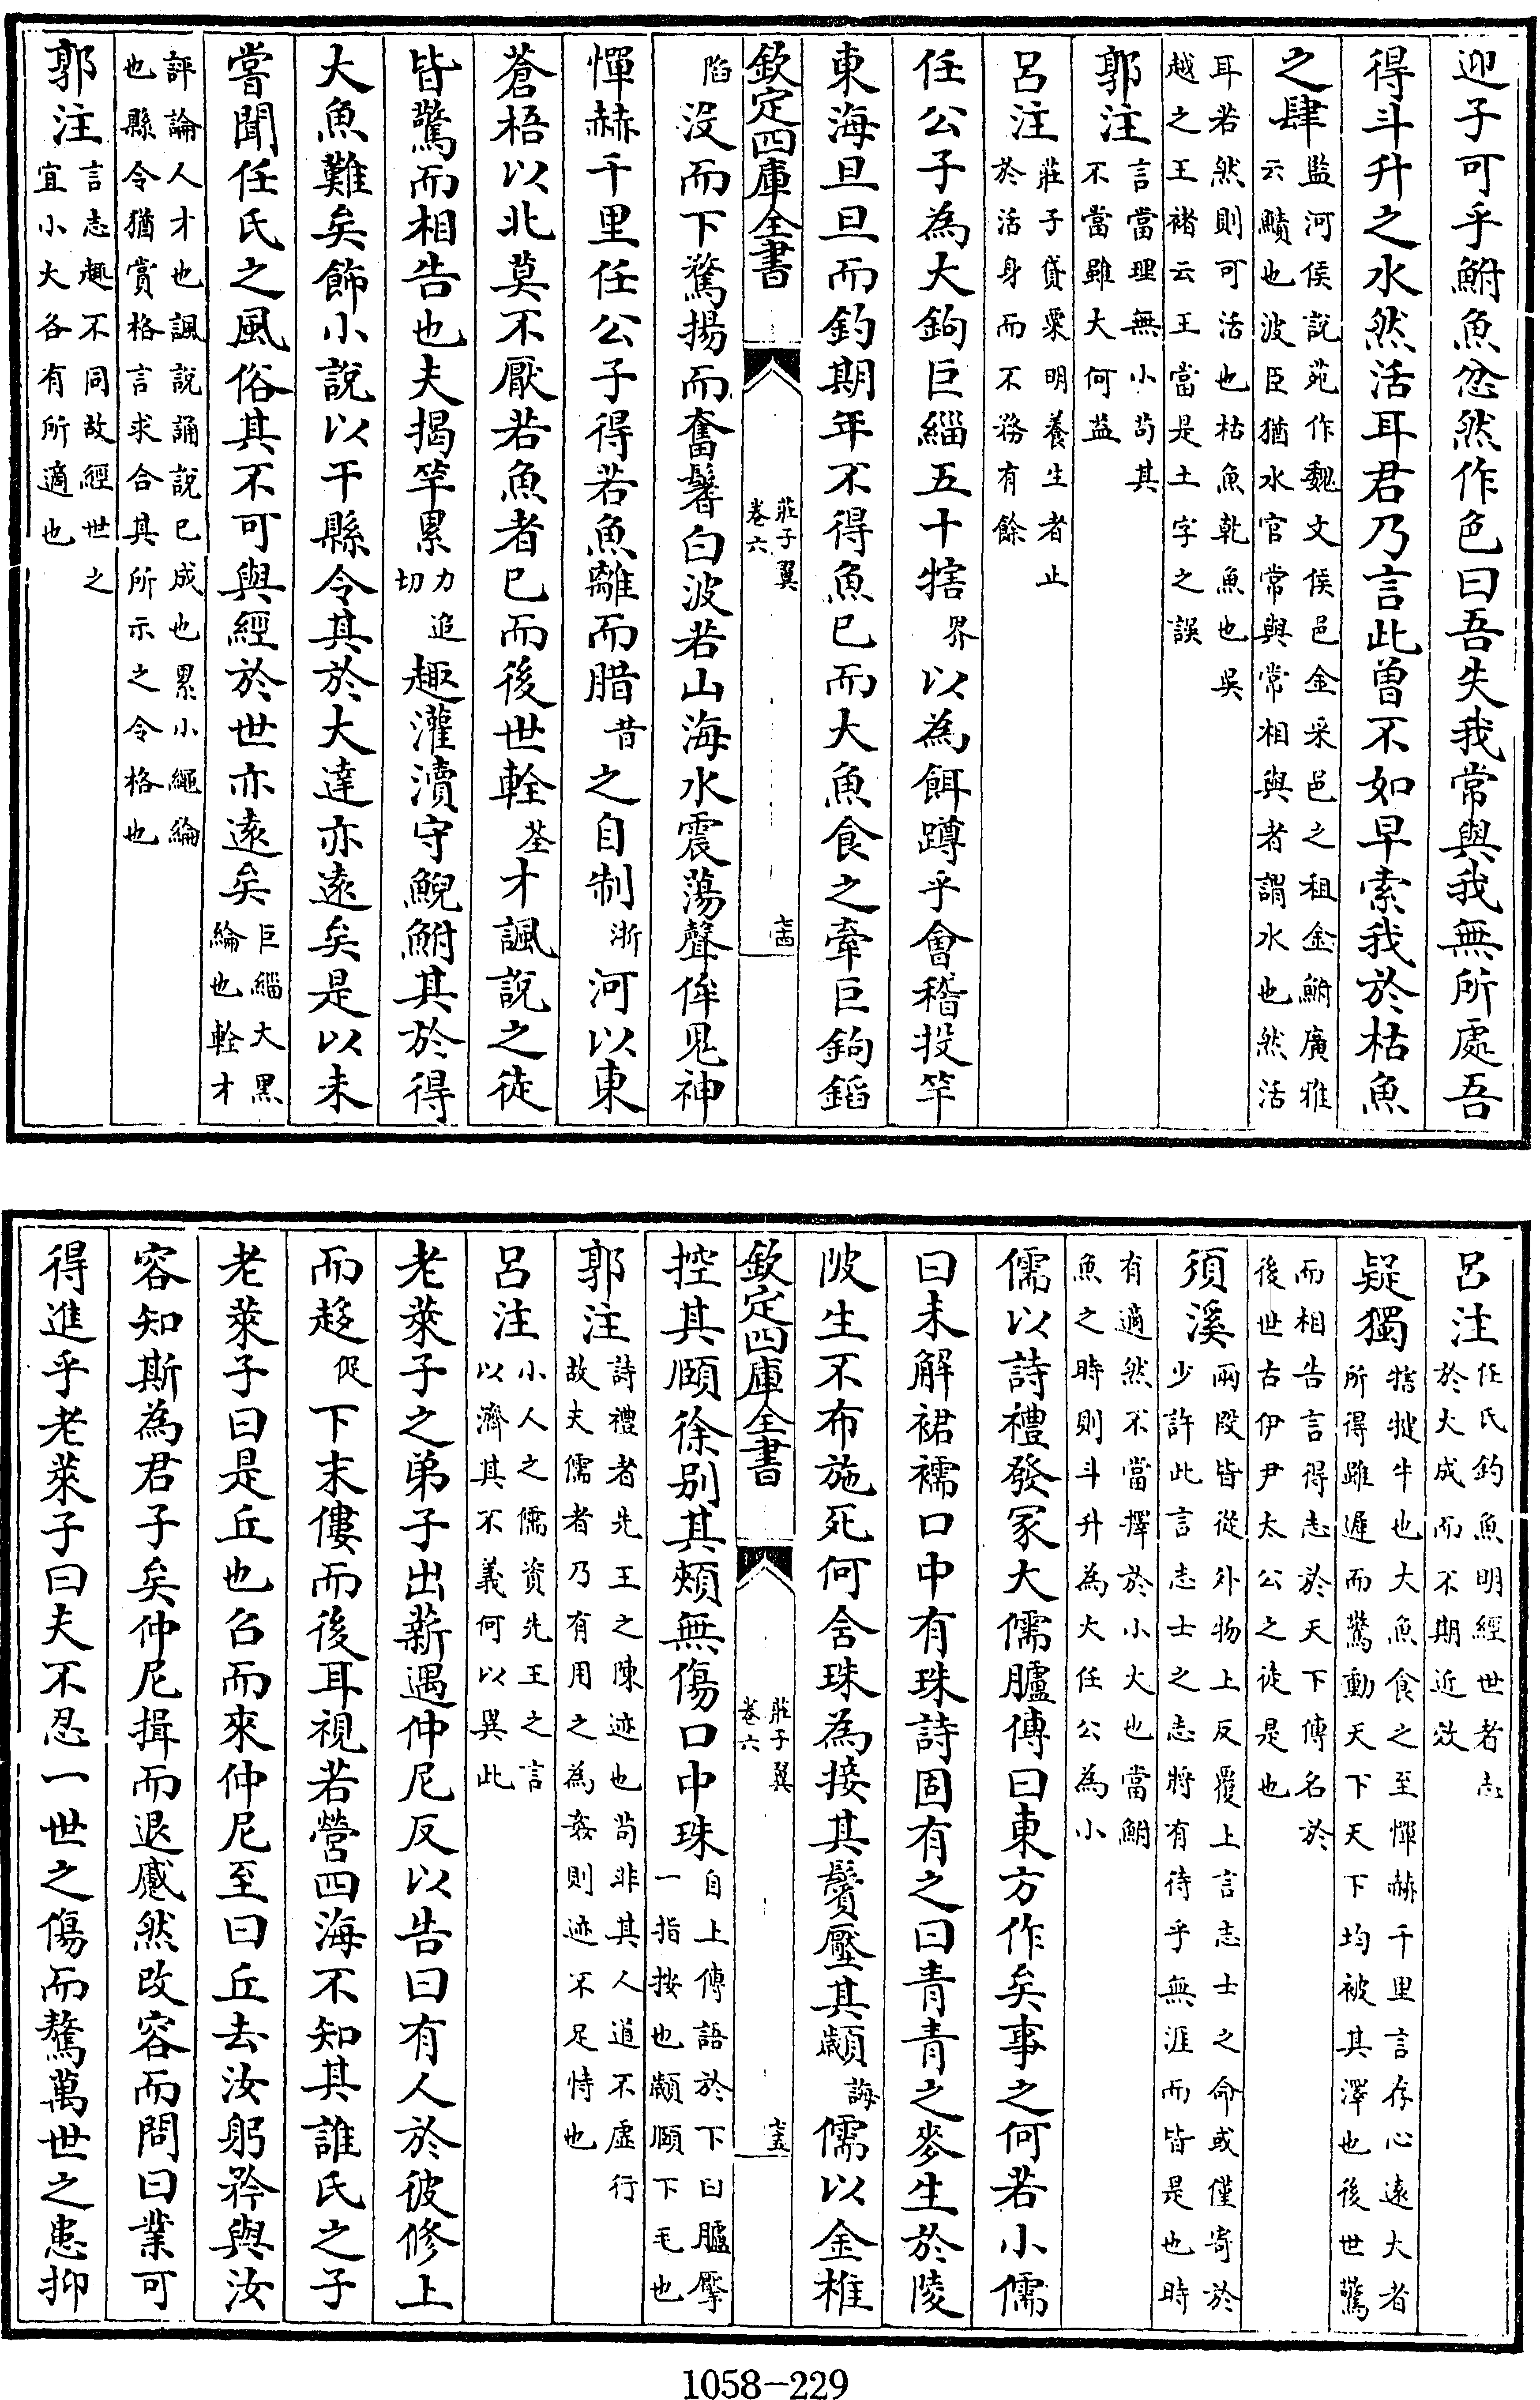 迎子可乎鮒魚忿然作色曰吾失我常與我無所處吾
得斗升之水然活耳君乃言此曾不如早索我於枯魚
之肆監河侯說苑作魏文侯邑金采邑之租金鮒廣雅
云鰿也波臣猶水官常與常相與者謂水也然活
耳若然則可活也枯魚乾魚也吳
越之王褚云王當是土字之誤
郭注言當理無小苟其
不當雖大何益
呂注莊子貸粟明養生者止
於活身而不務有餘
任公子為大鉤巨緇五十犗界以為餌蹲乎會稽投竿
東海旦旦而釣期年不得魚已而大魚食之牽巨鉤錎
欽定四庫全書
莊子翼
卷六
十四
陷沒而下驁揚而奮鬐白波若山海水震蕩聲侔鬼神
憚赫千里任公子得若魚離而腊昔之自制浙河以東
蒼梧以北莫不厭若魚者已而後世輇荃才諷說之徒
皆驚而相告也夫揭竿累力追切趣灌瀆守鯢鮒其於得
大魚難矣飾小說以干縣令其於大達亦遠矣是以未
嘗聞任氏之風俗其不可與經於世亦遠矣巨緇大黑
綸也輇才
評論人才也諷說誦說已成也累小繩綸
也縣令猶賞格言求合其所示之令格也
郭注言志趣不同故經世之
宜小大各有所適也
呂注任氏釣魚明經世者志
於大成而不期近效
疑獨犗犍牛也大魚食之至憚赫千里言存心遠大者
所得雖遲而驚動天下天下均被其澤也後世驚
而相告言得志於天下傳名於
後世古伊尹太公之徒是也
須溪兩段皆從外物上反覆上言志士之命或僅寄於
少許此言志士之志將有待乎無涯而皆是也時
有適然不當擇於小大也當鮒
魚之時則斗升為大任公為小
儒以詩禮發冢大儒臚傳曰東方作矣事之何若小儒
曰未解裙襦口中有珠詩固有之曰青青之麥生於陵
陂生不布施死何含珠為接其鬢壓其顪誨儒以金椎
欽定四庫全書
莊子翼
卷六
十五
控其頤徐別其頰無傷口中珠自上傳語於下曰臚擪
一指按也顪頤下毛也
郭注詩禮者先王之陳迹也苟非其人道不虛行
故夫儒者乃有用之為姦則迹不足恃也
呂注小人之儒資先王之言
以濟其不義何以異此
老萊子之弟子出薪遇仲尼反以告曰有人於彼修上
而趍促下末僂而後耳視若營四海不知其誰氏之子
老萊子曰是丘也召而來仲尼至曰丘去汝躬矜與汝
容知斯為君子矣仲尼揖而退蹙然改容而問曰業可
得進乎老萊子曰夫不忍一世之傷而驁萬世之患抑
1058-229